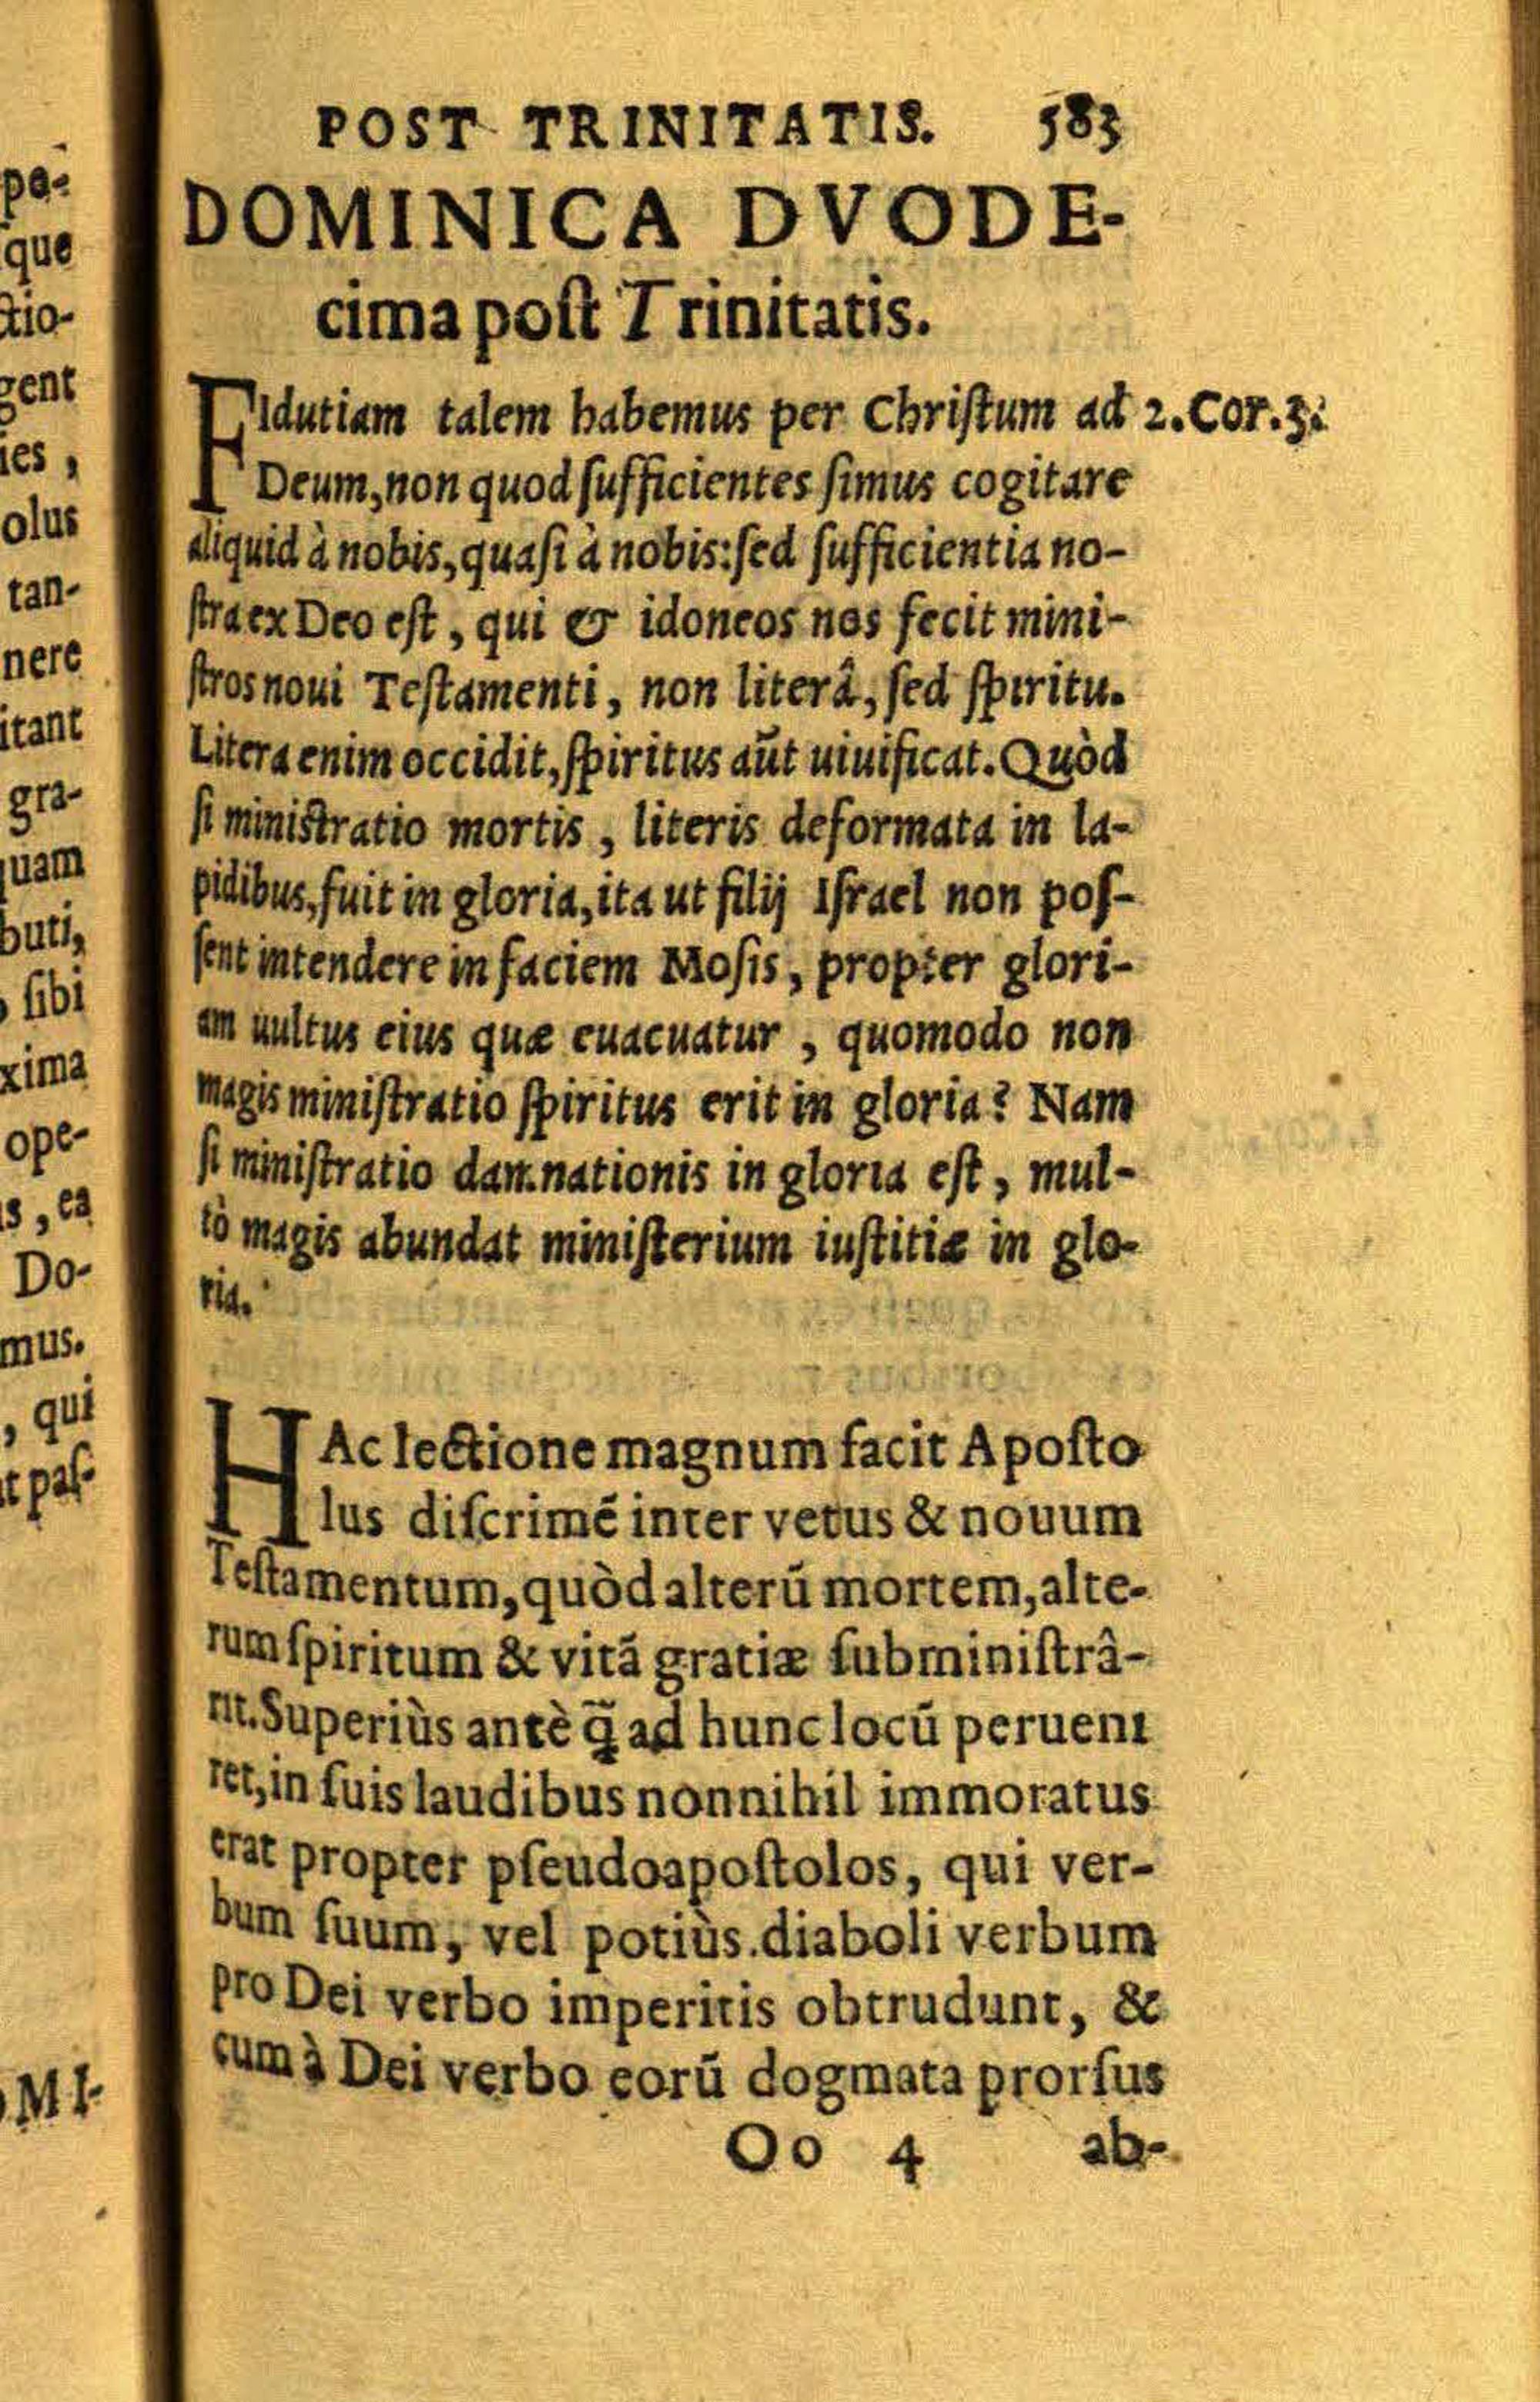 POST TRINITATIS. 583
DOMINICA DVODE-
cima poſt Trinitatis.
FIdutiam talem habemus per Chriſtum ad 2.Cor.3.
Deum, non quod ſufficientes ſimus cogitare
aliquid à nobis, quaſi à nobis: ſed ſufficientia no-
ſtra ex Deo eſt, qui & idoneos nos fecit mini-
ſtros noui Teſtamenti, non literâ, ſed ſpiritu.
Litera enim occidit, ſpiritus aũt uiuificat. Quòd
ſi miniſtratio mortis, literis deformata in la-
pidibus, fuit in gloria, ita ut filij Iſrael non poſ-
ſent intendere in faciem Moſis, propter glori-
am uultus eius quæ euacuatur, quomodo non
magis miniſtratio ſpiritus erit in gloria? Nam
ſi miniſtratio damnationis in gloria eſt, mul-
tò magis abundat miniſterium iuſtitiæ in glo-
ria.
HAc lectione magnum facit Apoſto
lus diſcrimẽ inter vetus & nouum
Teſtamentum, quòd alterũ mortem, alte-
rum ſpiritum & vitã gratiæ ſubminiſtrâ-
rit. Superiùs antè q̃ ad hunc locũ perueni
ret, in ſuis laudibus nonnihil immoratus
erat propter pſeudoapoſtolos, qui ver-
bum ſuum, vel potiùs diaboli verbum
pro Dei verbo imperitis obtrudunt, &
cum à Dei verbo eorũ dogmata prorſus
Oo 4 ab-
pe-
que
ctio-
gent
ies,
olus
tan-
nere
itant
gra-
quam
buti,
ſibi
xima
ope-
s, ea
Do-
mus.
, qui
t paſ-
MI-